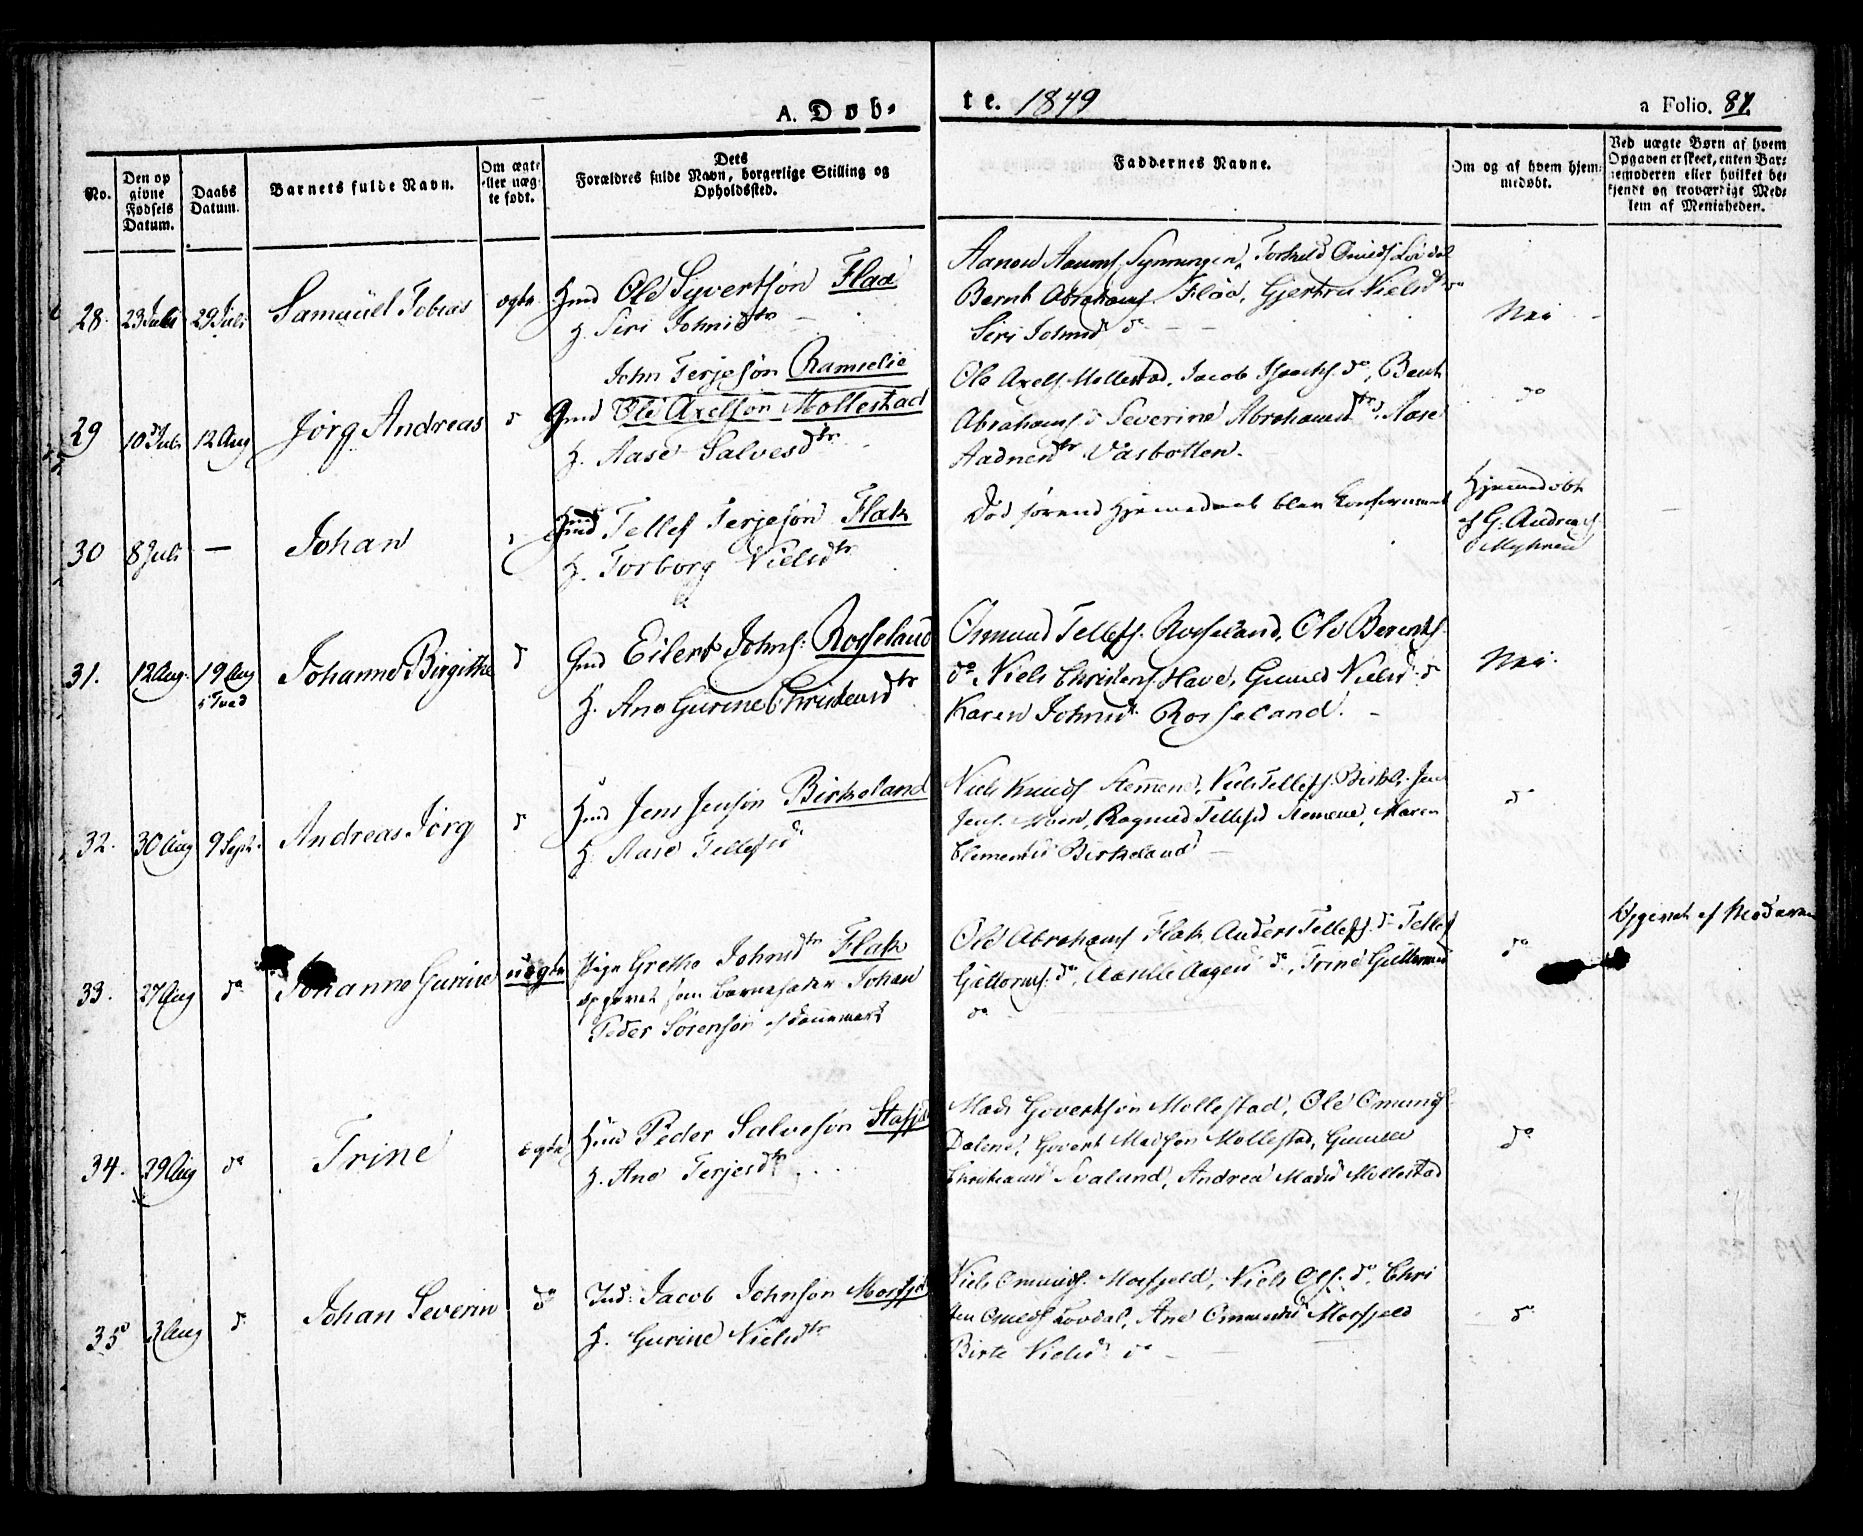 A. Døb-
te. 1849
a Folio. 87.
No.
Den op
givne
Fødsels
Datum.
Daabs
Datum.
Barnets fulde Navn.
Om ægte
eller uæg-
te født.
Dets
Forældres fulde Navn, borgerlige Stilling og
Opholdssted.
Faddernes Navne.
Om og af hvem hjem-
medøbt.
Ved uægte Børn af hvem
Opgaven er skeet, enten Bar-
nemoderen eller hvilket be-
kjendt og troværdigt Med-
lem af Menigheden.
28. 23 Juli 29 Juli Samuel Tobias ægte
Gmd Ole Syvertsøn Flaa
H. Siri Johnsdtr
Bernt Abrahams. Flaa, Gjertru Nielsd
Siri Johnsd do
Nei
29 10 Juli 12 Aug Jørg Andreas do
John Terjesøn Ramselie
Gmd Ole Axelsøn Mollestad
H. Aase Salvesdtr
Ole Axels. Mollestad, Jacob Isaachs. do, Bent
Abrahams do Severine Abrahamsdtr do, Aase
Aadnesdtr Vasbotten.
do
30 8 Juli — Johan
Gmd Tellef Terjesøn Flak
H. Torborg Nielsdtr
Død førend Hjemmedaab blev Confirmeret
Hjemmedøbt
af G. Andreas
Myhren
31. 12 Aug. 19 Aug
i Tved
Johanne Birgithe do
Gmd Eilert Johns. Rosseland
H. Ane Gurine Christensdtr
Omund Tellefs. Rosseland, Ole Berents.
do, Niels Christens. Have, Gunild Nielsd. do
Karen Johnsd. Rosseland.
Nei.
32. 30 Aug 9 Sept. Andreas Jørg do
Gmd Jens Jensøn Birkeland
H. Aase Tellefsd
Niels Knuds. Stemmene, Niels Tellefs. Birkl. Jens
Jens. Moen, Ragnild Tellefsd Stemene, Maren
Clementsd Birkeland
do
33. 27 Aug do Johanne Gurine uægte
Pige Grethe Johnsdtr Flak
opgivet som Barnefader Johan
Peder Sørensøn af Danmark
Ole Abrahams. Flak, Anders Tellefs. do Tellef
Guttorms. do, Aasille Aagesd do, Trine Guttormsd
do
do
Opgivet af Moderen
34. 29 Aug do Trine ægte
Gmd Peder Salvesøn Stafjd
H. Ane Terjesdtr
Mads Govertsøn Mollestad, Ole Omunds.
Dalene, Govert Madsøn Mollestad, Gunild
Christiansd Svaland, Andrea Madsd Mollestad
do
35 3 Aug do Johan Severin do
Ind: Jacob Johnsøn Mosfjd
H. Gurine Nielsdtr
Niels Omunds. Mosfjeld, Niels Ols. do, Chri
sten Omunds. Lovdal, Ane Omundsd Mosfjeld
Birte Nielsd do
do